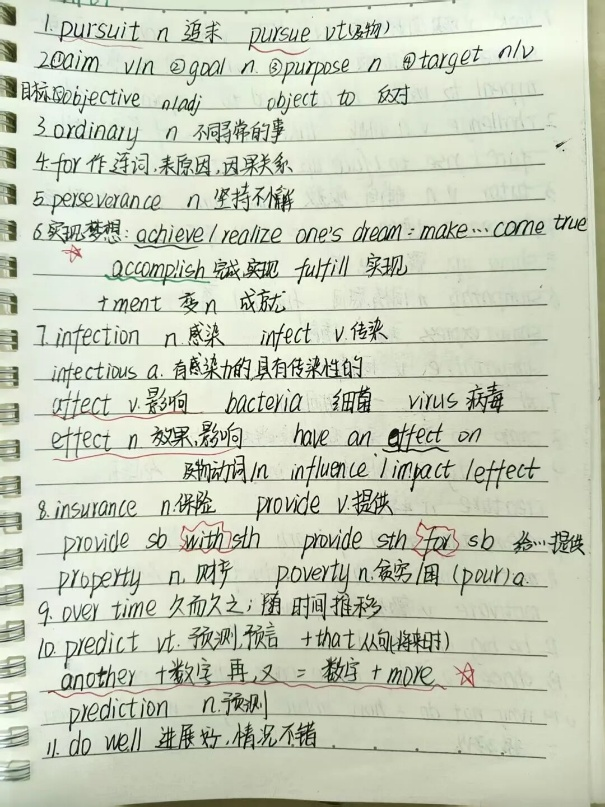 1. pursuit n 追求 pursue vt(及物)
2.①aim v/n ②goal n. ③purpose n ④target n/v
目标⑤objective n/adj object to 反对
3. ordinary n 不同寻常的事
4. for 作连词,表原因,因果关系
5. perseverance n 坚持不懈
6.实现梦想: achieve / realize one's dream = make…come true
accomplish 完成,实现 fulfill 实现
+ment 变n 成就
7. infection n.感染 infect v.传染
infectious a. 有感染力的,具有传染性的
affect v.影响 bacteria 细菌 virus 病毒
effect n 效果,影响 have an effect on
及物动词/n influence / impact / effect
8. insurance n.保险 provide v.提供
provide sb with sth provide sth for sb 给…提供
property n. 财产 poverty n.贫穷/困 (pour)a.
9. over time 久而久之;随时间推移
10. predict vt. 预测,预言 +that 从句(将来时)
another +数字 再,又 = 数字 + more
prediction n.预测
11. do well 进展好,情况不错